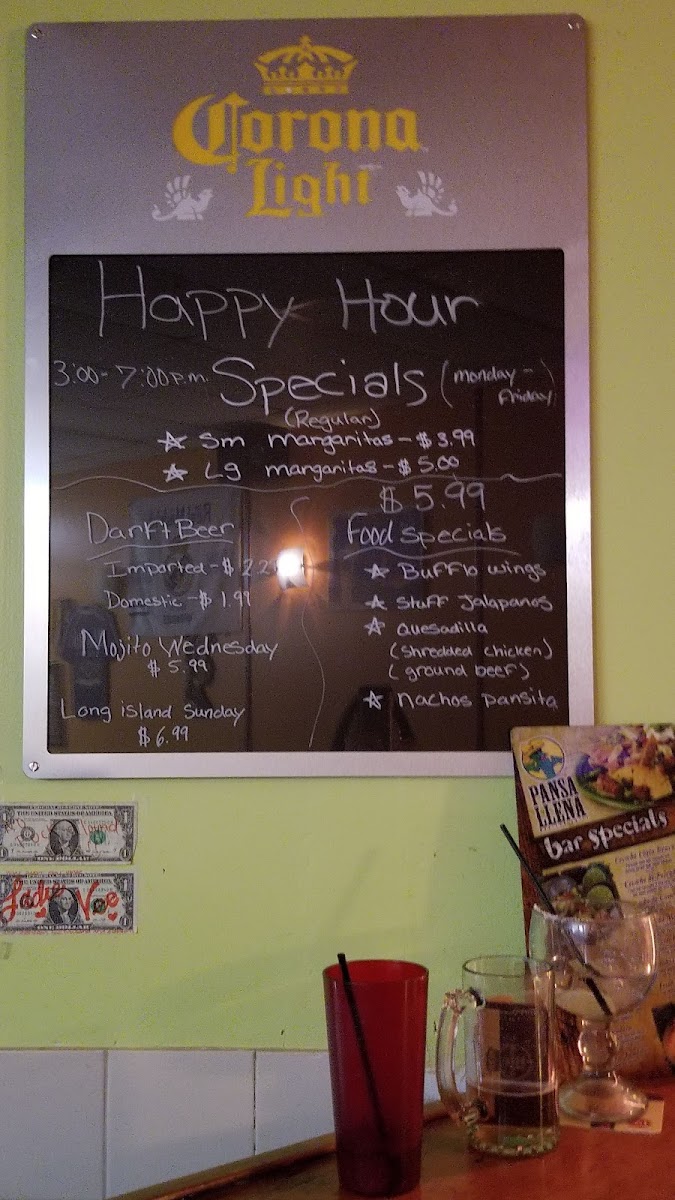 Corona
Light
Happy Hour
3:00-7:00p.m. Specials (monday-
friday)
(Regular)
☆ Sm margaritas-$3.99
☆ Lg margaritas-$5.00
$5.99
Darft Beer
Imported-$2.2
Domestic-$1.99
Mojito Wednesday
$5.99
Long island Sunday
$6.99
Food specials
☆ Bufflo wings
☆ Stuff Jalapanos
☆ Quesadilla
(shredded chicken)
(ground beef)
☆ nachos pansita
THE UNITED STATES OF AMERICA
ONE DOLLAR
ONE DOLLAR
PANSA
LLENA
bar specials